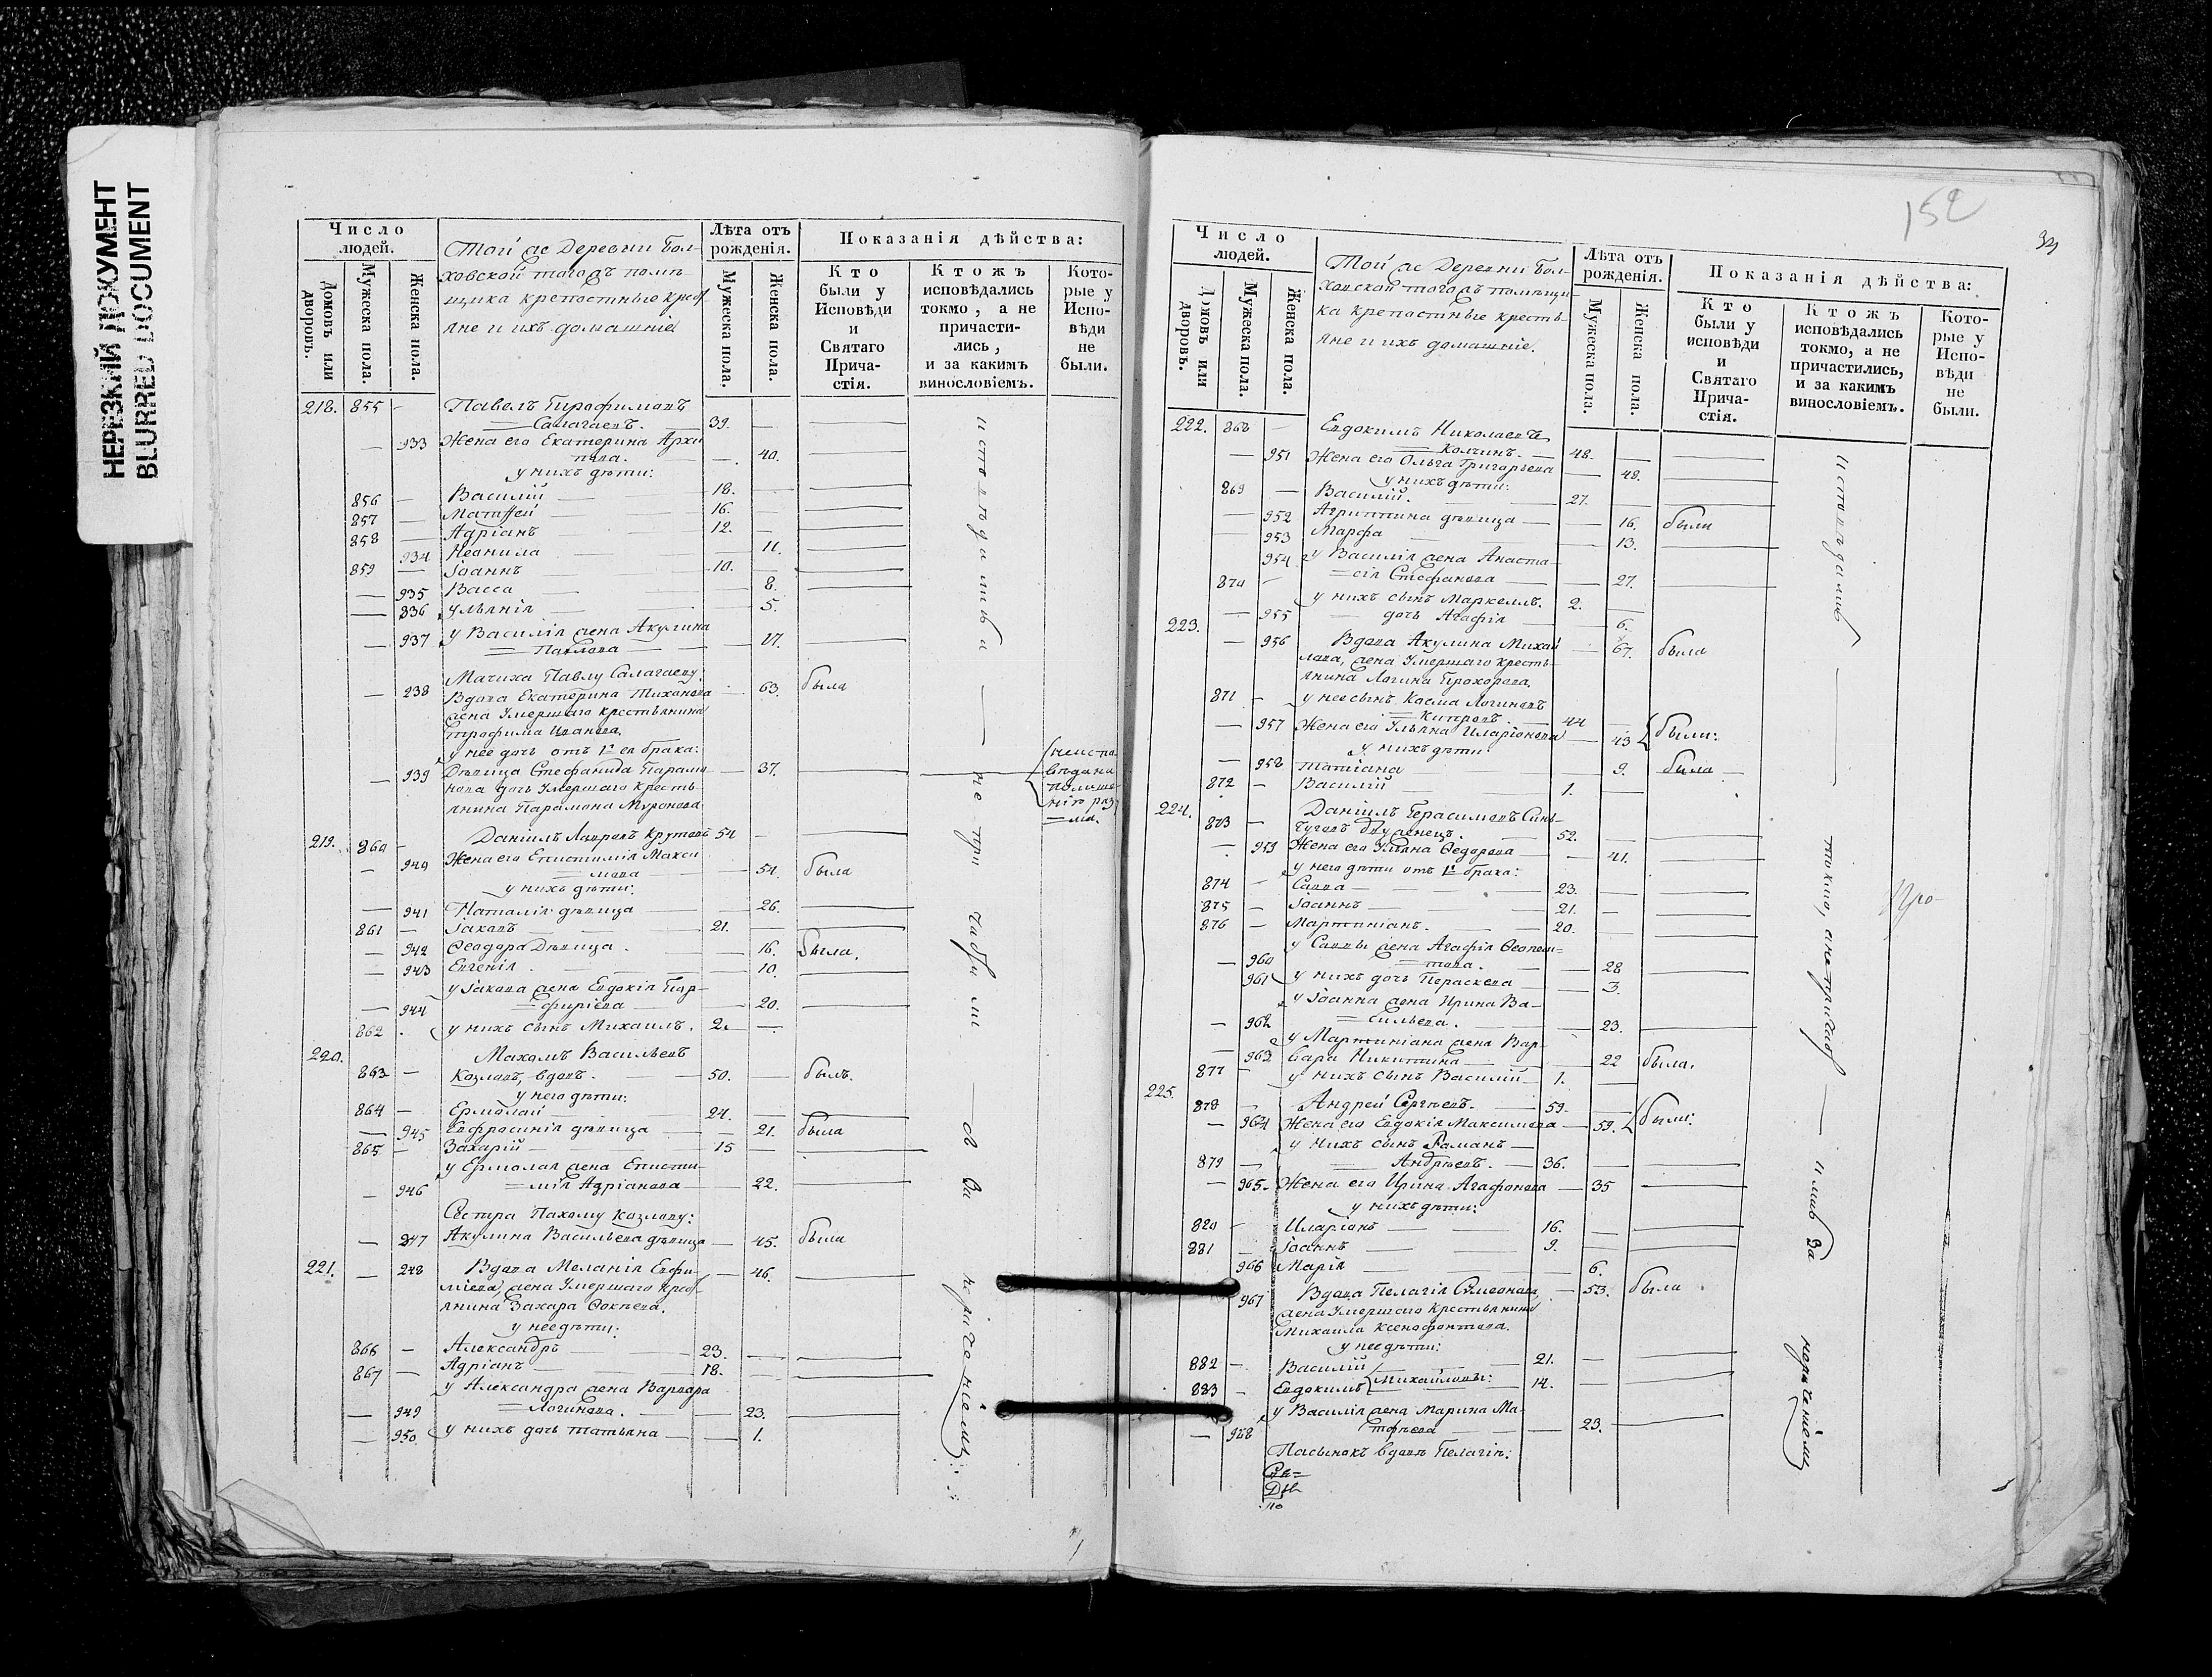 НЕРЕЗКИЙ ДОКУМЕНТ
BLURRED DOCUMENT
Число людей.
Домовъ или дворовъ.
Мужеска пола.
Женска пола.
Той же деревни Бол-
ховской тогожъ помѣ-
щика крепостные крес
яне и ихъ домашніе
Лѣта отъ рожденія.
Мужеска пола.
Женска пола.
Показанія дѣйства:
Кто были у Исповѣди и Святаго Прича-стія.
Ктожъ исповѣдались токмо, а не причасти-лись, и за какимъ винословіемъ.
Кото-рые у Испо-вѣди не были.
218. 855 — Павелъ Трофимовъ
Салагаевъ. 39.
— 933 Жена его Екатерина Архи
пова. 40.
у нихъ дѣти:
856 — Василій 18.
857 — Матѳей 16.
858 — Адріанъ 12.
934 Неонила 11.
859 — Іоаннъ 10.
— 935 Васса 8.
— 836 Ульянія 5.
— 937 у Василія жена Акулина
Павлова 17.
Мачиха Павлу Салагаеву:
— 238 Вдова Екатерина Тиханова 63. была
жена умершаго крестьянина
Трофима Иванова.
у нее дочь отъ 1го ея брака:
— 939 Дѣвица Стефанида Парамо 37.
нова дочь умершаго кресть-
янина Парамона Миронова
219. 860 — Даніилъ Лавровъ Крутовъ 54
— 940 Жена его Епистимія Макси
мова 54. была
у нихъ дѣти:
— 941 Наталія дѣвица 26.
861 — Іаковъ 21.
— 942 Ѳеодора дѣвица. 16. была.
— 943 Евгенія. 10.
у Іакова жена Евдокія Пор-
— 944 фиріева 20.
862 . у нихъ сынъ Михаилъ. 2.
220. Пахомъ Васильевъ
863 — Козловъ, вдовъ. 50. былъ.
у него дѣти:
864 — Ермолай 24.
— 945 Евфросинія дѣвица 21. была
865 — Захарій 15
у Ермолая жена Еписти-
— 946 мія Адріанова 22.
Сестра Пахому Козлову:
— 247 Акулина Васильева дѣвица 45. была
221. — 248 Вдова Меланія Евфи- 46.
міева, жена умершаго крес
янина Захара Фокѣева.
у нее дѣти:
866 — Александръ 23.
867 — Адріанъ 18.
у Александра жена Варвара
— 949 Логинова. 23.
— 950 у нихъ дочь Татьяна 1.
исповѣдались — не причас ли — а за нераченіемъ
152
Число людей.
Домовъ или дворовъ.
Мужеска пола.
Женска пола.
Той же деревни Бол-
ховской тогожъ помѣщи-
ка крепостные кресть-
яне и ихъ домашніе.
Лѣта отъ рожденія.
Мужеска пола.
Женска пола.
Показанія дѣйства:
Кто были у исповѣди и Святаго Прича-стія.
Ктожъ исповѣдались токмо, а не причастились, и за какимъ винословіемъ.
Кото-рые у Испо-вѣди не были.
222. 868 — Евдокимъ Николаевъ
Колчинъ. 48.
— 951 Жена его Ольга Григорьева 48.
у нихъ дѣти:
869 — Василій. 27.
— 952 Агриппина дѣвица 16. были
— 953 Марфа 13.
954 у Василія жена Анаста-
сія Стефанова 27.
870 — у нихъ сынъ Маркеллъ. 2.
— 955 дочь Агафія 6.
223. — 956 Вдова Акулина Михай 67. была
лова, жена умершаго кресть-
янина Логина Прохорова.
871 — у нее сынъ Косма Логиновъ
Кипровъ. 44
— 957 Жена его Ульяна Иларіонова 43 были:
у нихъ дѣти:
— 958 Татіана 9. была
872 — Василій 1.
224. 873 — Даніилъ Герасимовъ Сини-
чуговъ двуженецъ. 52.
— 959 Жена его Ульяна Ѳедорова 41.
у него дѣти отъ 1го брака:
874 — Савва 23.
875 — Іоаннъ 21.
876 — Мартиніанъ. 20.
у Саввы жена Агафія Ѳеопем-
— 960 това. 28
961 у нихъ дочь Параскева 3.
у Іоанна жена Ирина Ва-
— 962 сильева. 23.
у Мартиніана жена Вар-
— 963 вара Никитина 22 была.
877 — у нихъ сынъ Василій 1.
225. 878 — Андрей Сергѣевъ. 59.
— 964 Жена его Евдокія Максимова 59. были:
у нихъ сынъ Романъ
879 — Андрѣевъ. 36.
— 965. Жена его Ирина Агафонова 35
у нихъ дѣти:
820 — Иларіонъ 16.
881 — Іоаннъ 9.
966 Марія 6.
967 Вдова Пелагія Симеонова, 53. была
жена умершаго крестьянина
Михаила Ксенофонтова.
у нее дѣти:
882 — Василій 21.
883 — Евдокимъ Михайловы: 14.
у Василія жена Марина Ма-
— 968 тфѣева 23.
Пасынокъ вдовѣ Пелагіи:
исповѣдались — токмо, а не причас — ились за нераченіемъ